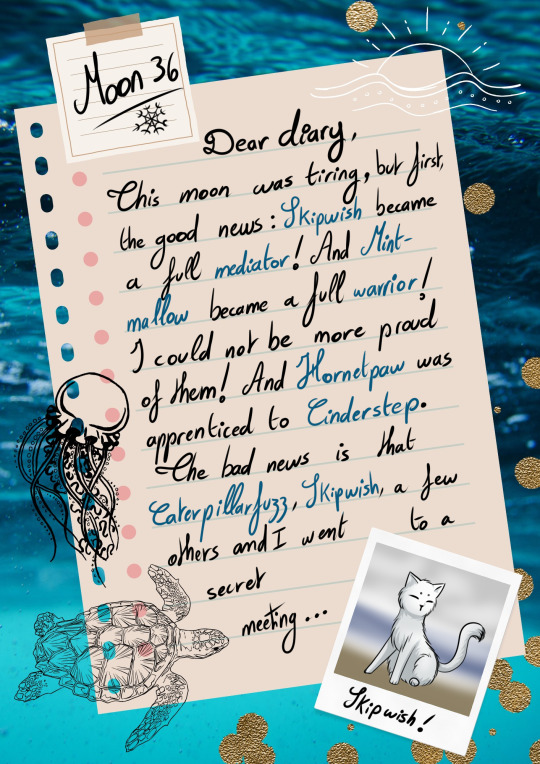 Moon 36
Dear diary,
This moon was tiring, but first,
the good news: Skipwish became
a full mediator! And Mint-
mallow became a full warrior!
I could not be more proud
of them! And Hornetpaw was
apprenticed to Cinderstep.
The bad news is that
Caterpillarfuzz, Skipwish, a few
others and I went to a
secret
meeting...
Skipwish!